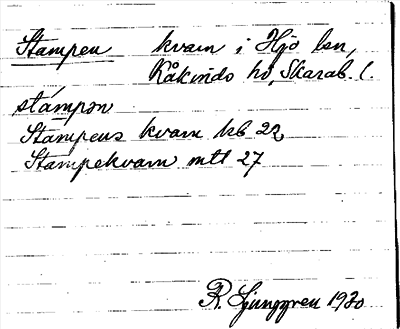 Stampen kvarn i Hjo lsn,
Kåkinds hd, Skarab. l.
stámpən
Stampens kvarn kb 22
Stampekvarn mtl 27
R. Ljunggren 1920